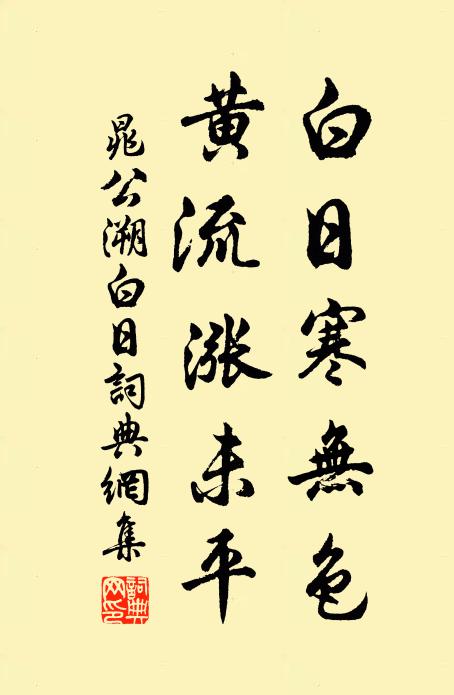 白日寒無色
黄流漲未平
晁公溯白日詞典網集
詞典網印